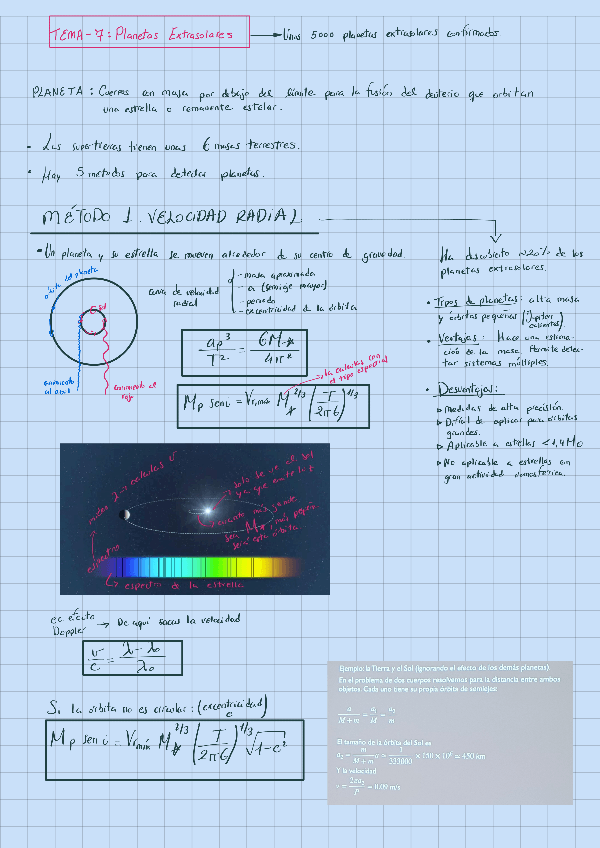 TEMA-7: Planetas Extrasolares → Unos 5000 planetas extrasolares confirmados
PLANETA: Cuerpos con masa por debajo del límite para la fusión del deuterio que orbitan
una estrella o remanente estelar.
- Las supertierras tienen unas 6 masas terrestres.
• Hay 5 métodos para detectar planetas.
MÉTODO 1. VELOCIDAD RADIAL
• Un planeta y su estrella se mueven alrededor de su centro de gravedad.
órbita del planeta
sol
corrimiento al azul
corrimiento al rojo
curva de velocidad radial
- masa aproximada
- a (semieje mayor)
- periodo
- excentricidad de la órbita
ap³/T² = GM*/4π²
la calculas con el tipo espectral
Mp sen i = Vr,máx M*^2/3 (T/2πG)^1/3
Ha descubierto ~20% de los
planetas extrasolares.
• Tipos de planetas: alta masa
y órbitas pequeñas (Júpiter calientes)
• Ventajas: Hace una estima-
ción de la masa. Permite detec-
tar sistemas múltiples.
• Desventajas:
▷ Medidas de alta precisión.
▷ Difícil de aplicar para órbitas
grandes.
▷ Aplicable a estrellas < 1,4 M⊙
▷ No aplicable a estrellas con
gran actividad atmosférica.
mides λ → calculas v
solo se ve el sol
ya que emite luz
cuanto más grande
sea M* más pequeña
será esta órbita
espectro
→ espectro de la estrella
ec efecto
Doppler → De aquí sacas la velocidad
v/c = λ - λ₀/λ₀
Si la órbita no es circular: (excentricidad)
e
Mp sen i = Vr,máx M*^2/3 (T/2πG)^1/3 √1-e²
Ejemplo: la Tierra y el Sol (ignorando el efecto de los demás planetas).
En el problema de dos cuerpos resolvemos para la distancia entre ambos
objetos. Cada uno tiene su propia órbita de semieje:
a/M+m = a₁/M = a₂/m
El tamaño de la órbita del Sol es
a₂ = m/M+m a ≃ 1/333000 × 150 × 10⁶ ≃ 450 km
Y la velocidad
v = 2πa₂/P = 0.09 m/s